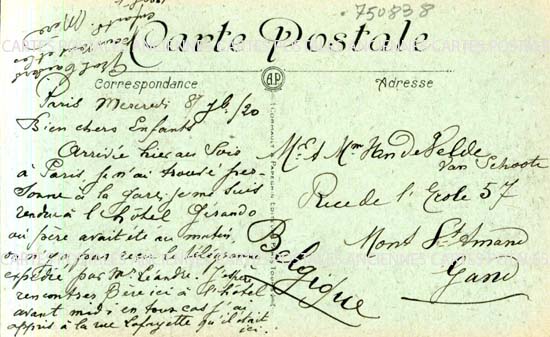 750838
Carte Postale
Correspondance
Adresse
Paris Mercredi 8 7bre/20
Bien chers Enfants
Arrivée hier au Soir
à Paris, je n'ai trouvé per-
sonne à la gare, je me suis
rendue à l'hôtel Gérando
où père avait été au matin,
reçu le télégramme
expédié par Mr Léandre. J'espère
rencontrer Père ici à l'hôtel
avant midi en tous cas j'ai
appris à la rue Lafayette qu'il était
ici.
Mr & Mm Van de Velde
Van Schoote
Rue de l'Ecole 57
Mont St Amand
Gand
Belgique
A.P.